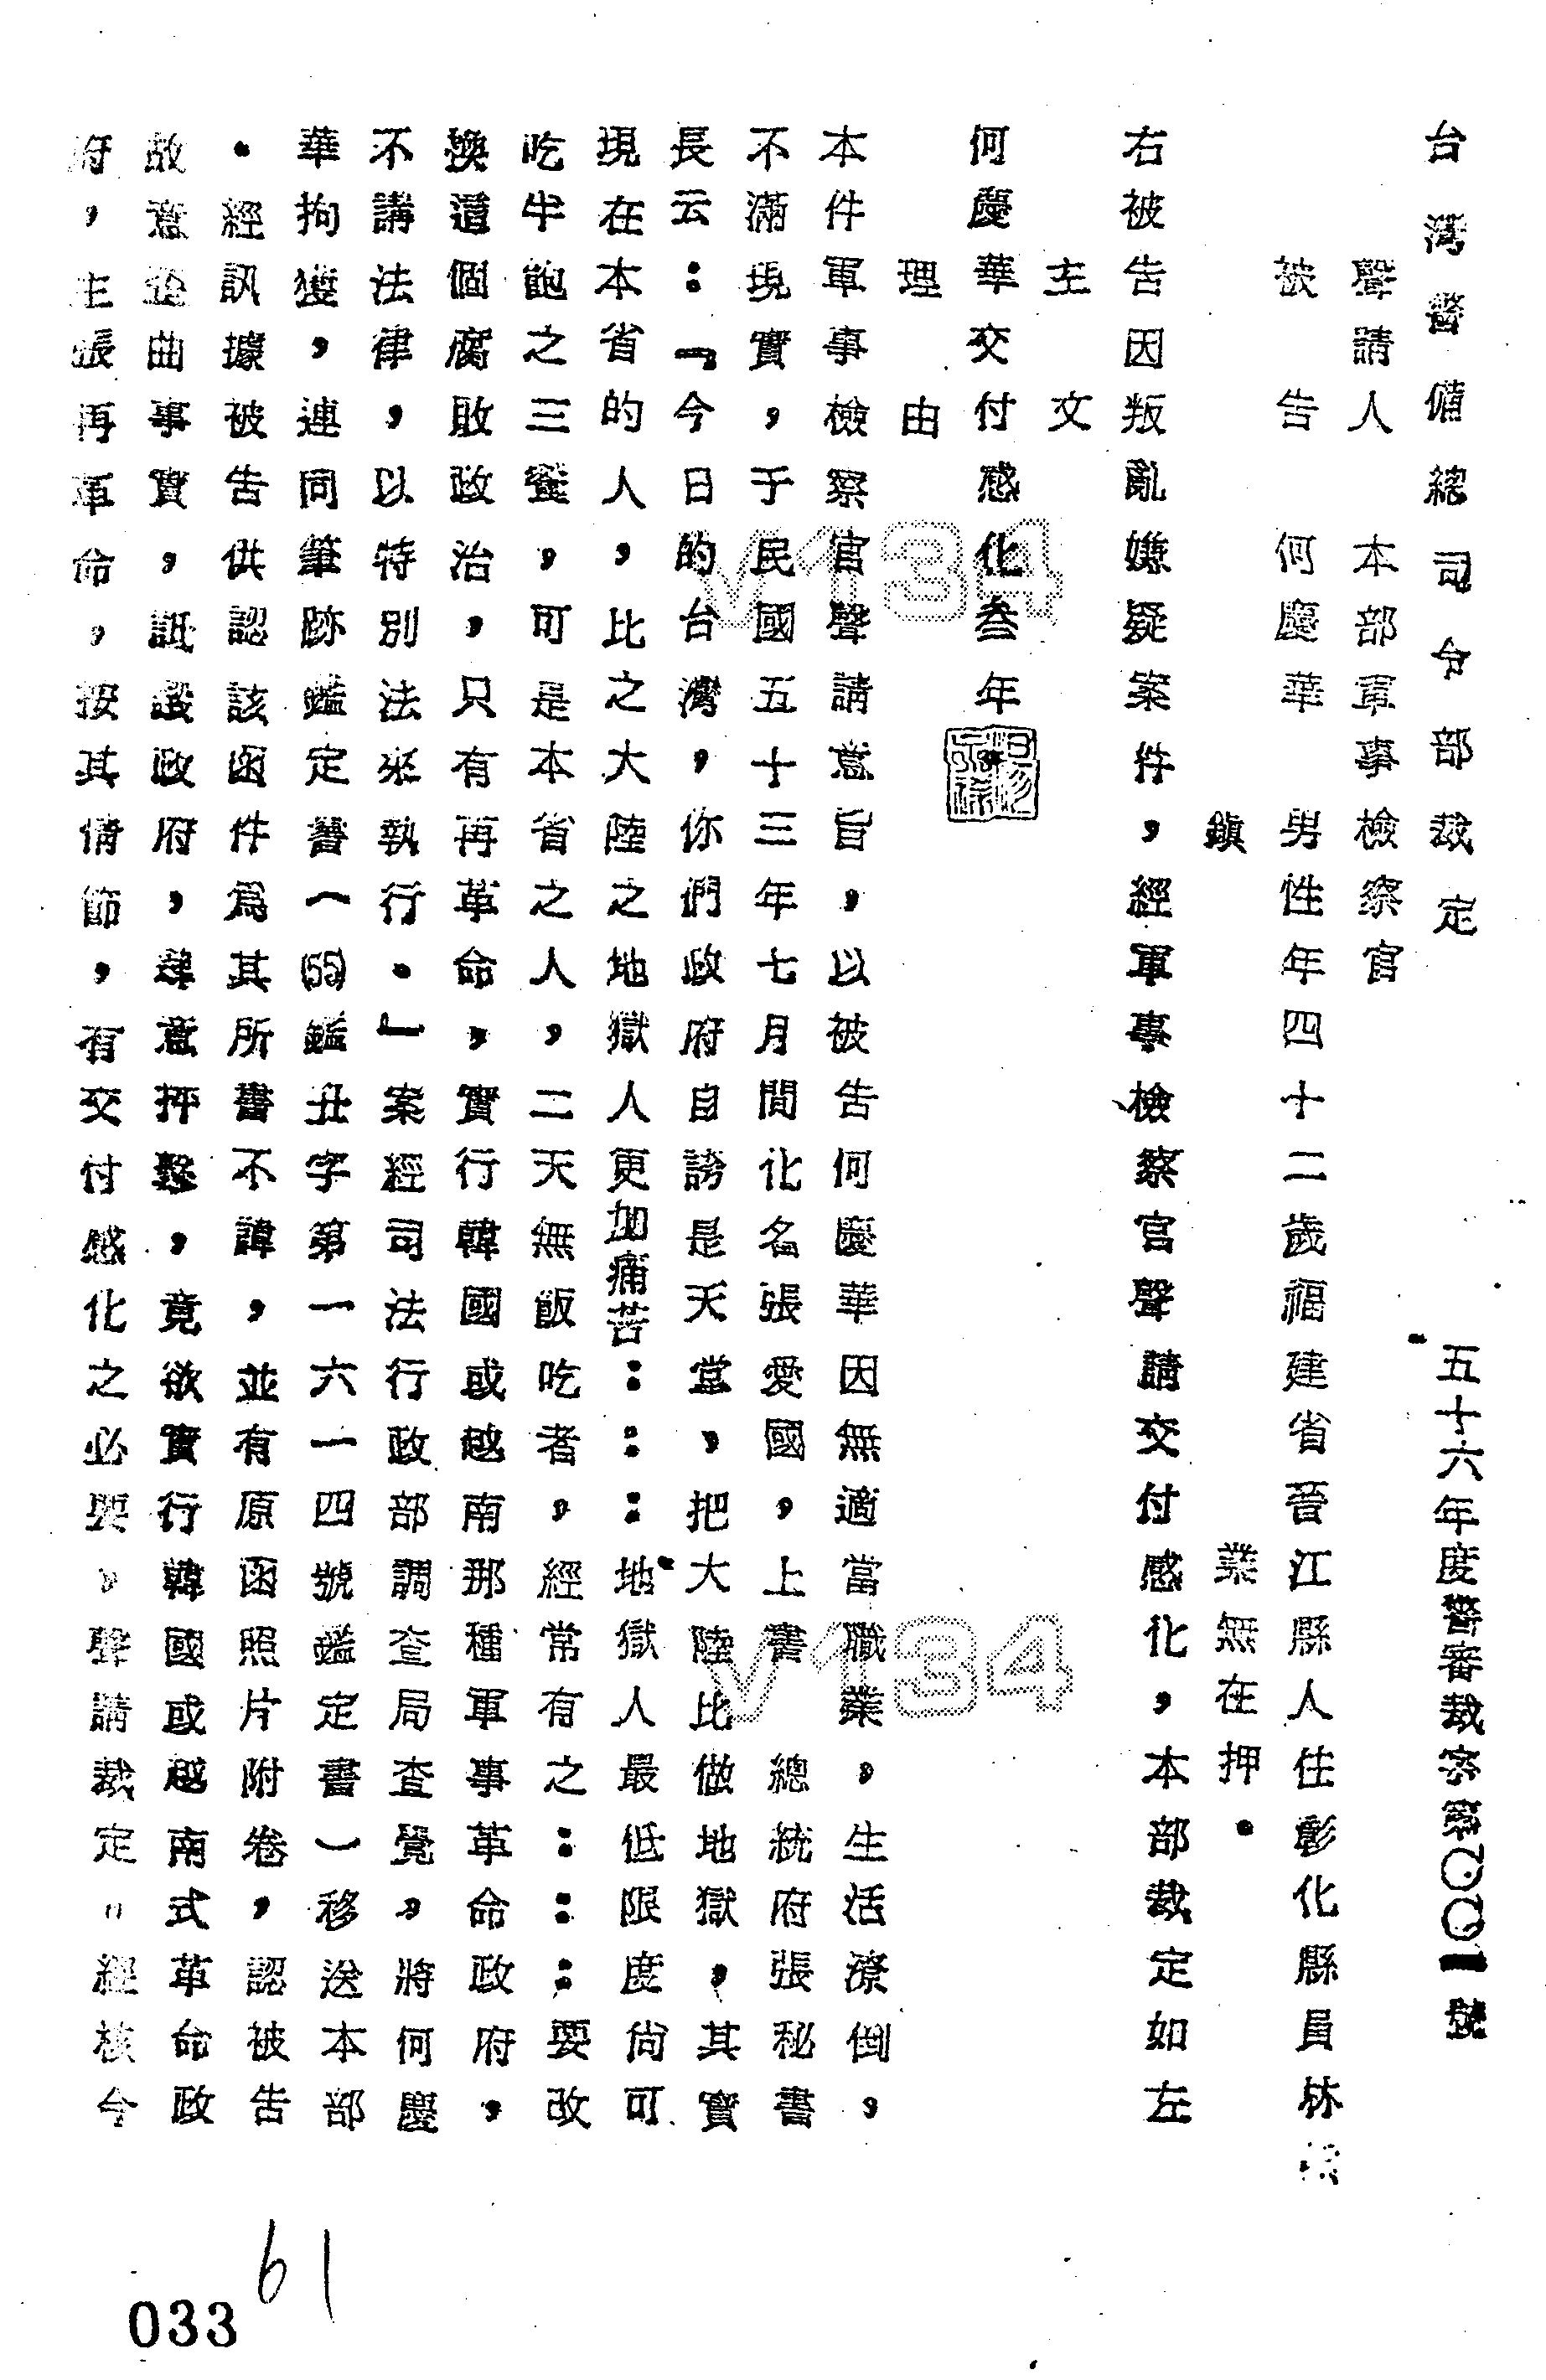 台灣警備總司令部裁定
五十六年度警審裁字第〇〇一號
聲請人　本部軍事檢察官
被告　何慶華　男性年四十二歲福建省晉江縣人住彰化縣員林
鎮　業無在押。
右被告因叛亂嫌疑案件，經軍事檢察官聲請交付感化，本部裁定如左
主文
何慶華交付感化叁年。
理由
本件軍事檢察官聲請意旨，以被告何慶華因無適當職業，生活潦倒，
不滿現實，于民國五十三年七月間化名張愛國，上書　總統府張秘書
長云：「今日的台灣，你們政府自誇是天堂，把大陸比做地獄，其實
現在本省的人，比之大陸之地獄人更加痛苦：：：地獄人最低限度尚可
吃半飽之三餐，可是本省之人，二天無飯吃者，經常有之：：：要改
換這個腐敗政治，只有再革命，實行韓國或越南那種軍事革命政府，
不講法律，以特別法來執行。」案經司法行政部調查局查覺，將何慶
華拘獲，連同筆跡鑑定書（(53)鑑丑字第一六一四號鑑定書）移送本部
。經訊據被告供認該函件為其所書不諱，並有原函照片附卷，認被告
故意歪曲事實，詆譭政府，肆意抨擊，竟欲實行韓國或越南式革命政
府，主張再革命，按其情節，有交付感化之必要，聲請裁定。經核令
033
61
v134
v134